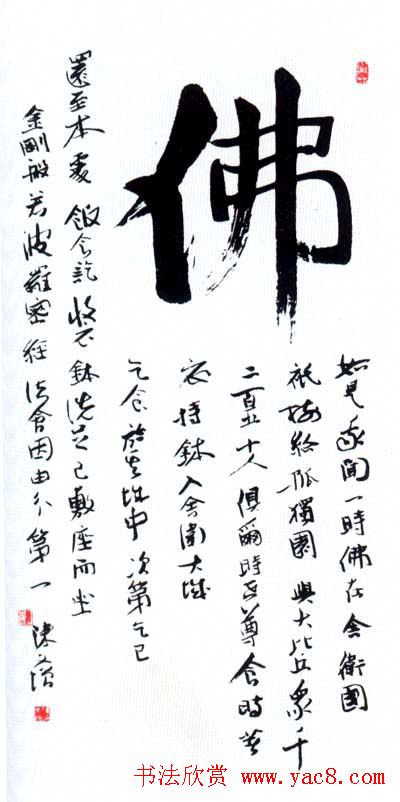 佛
如是我聞一時佛在舍衛國
祇樹給孤獨園與大比丘眾千
二百五十人俱爾時世尊食時著
衣持鉢入舍衛大城
乞食於其城中次第乞已
還至本處飯食訖收衣鉢洗足已敷座而坐
金剛般若波羅密經法會因由分第一
陳
书法欣赏 www.yac8.com